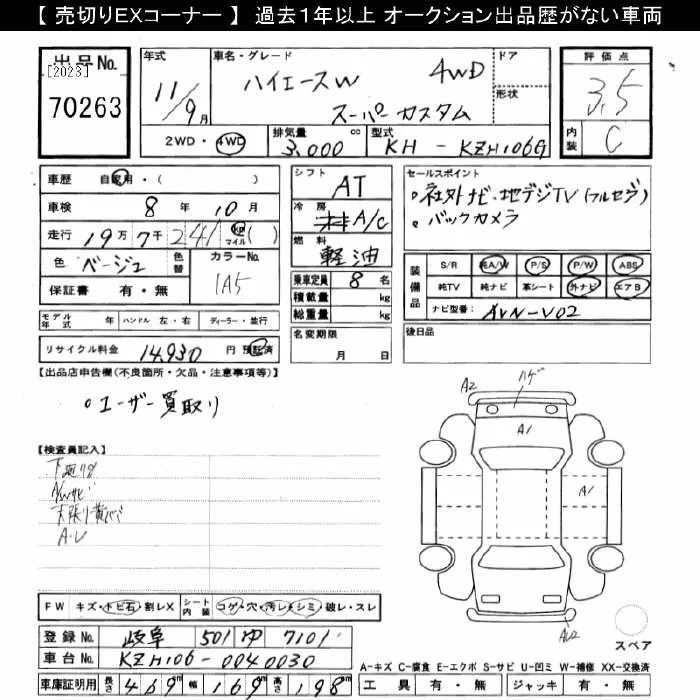 【 売切りEXコーナー 】 過去1年以上 オークション出品歴がない車両
出品No. [2023] 70263
年式 11/9月
車名・グレード ハイエースW 4WD スーパーカスタム
ドア
形状
2WD・4WD
排気量 3,000 cc
型式 KH-KZH106G
評価点 3.5
内装 C
車歴 自家用・( )
車検 8年10月
走行 19万7千241 km マイル( )
色 ベージュ 色替 カラーNo. 1A5
保証書 有・無
シフト AT
冷房 A/C
燃料 軽油
乗車定員 8名
積載量 kg
総重量 kg
セールスポイント
社外ナビ、地デジTV(フルセグ)
バックカメラ
装備品 S/R 純A/W P/S P/W ABS
純TV 純ナビ 革シート 外ナビ エアB
ナビ型番 AVN-V02
モデル年式 年 ハンドル 左・右 ディーラー・並行
リサイクル料金 14,930 円 預託済
名変期限 月 日
後日品
【出品店申告欄(不良箇所・欠品・注意事項等)】
ユーザー買取り
【検査員記入】
下廻りサビ
A/Wサビ
A2 ハゲ
A1
A1
FW キズ・トビ石・割レX シート内装 コゲ・穴・汚レ・シミ・破レ・スレ
スペア
登録No. 岐阜 501 ゆ 7101
車台No. KZH106-0040030
車庫証明用 長さ 469 幅 169 高さ 198 cm
A-キズ C-腐食 E-エクボ S-サビ U-凹ミ W-補修 XX-交換済
工具 有・無 ジャッキ 有・無